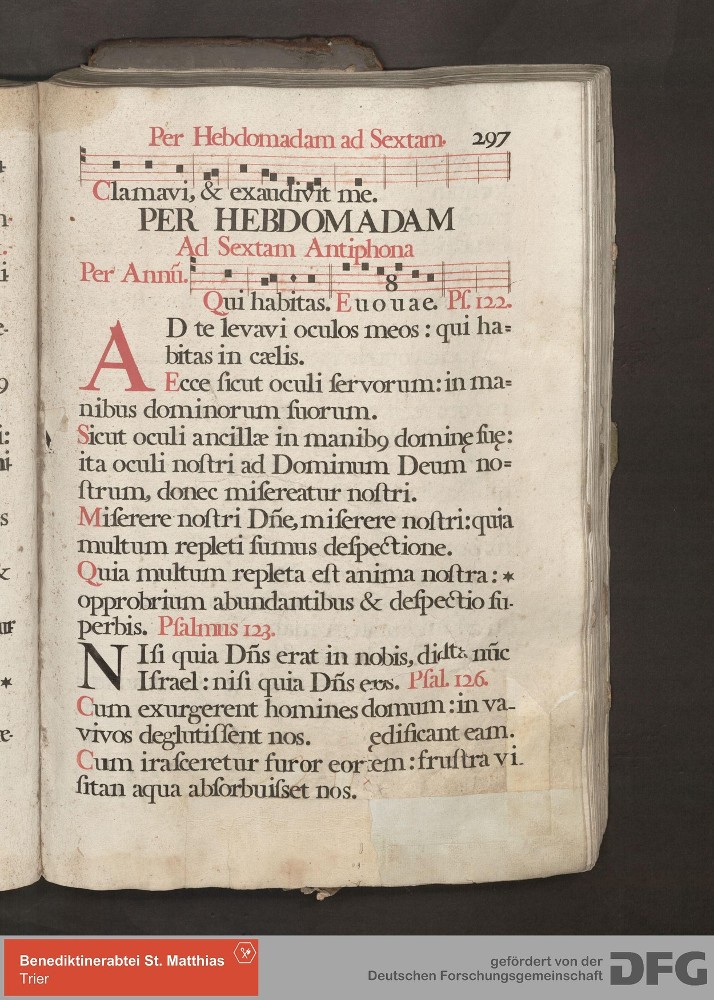 Per Hebdomadam ad Sextam. 297
Clamavi, & exaudivit me.
PER HEBDOMADAM
Ad Sextam Antiphona
Per Annū.
8
Qui habitas. E u o u a e. Pſ. 122.
AD te levavi oculos meos : qui ha=
bitas in cælis.
Ecce ſicut oculi ſervorum: in ma=
nibus dominorum ſuorum.
Sicut oculi ancillæ in manibꝯ dominę ſuę:
ita oculi noſtri ad Dominum Deum no=
ſtrum, donec miſereatur noſtri.
Miſerere noſtri Dñe, miſerere noſtri: quia
multum repleti ſumus deſpectione.
Quia multum repleta eſt anima noſtra : *
opprobrium abundantibus & deſpectio ſu-
perbis. Pſalmus 123.
NIſi quia Dñs erat in nobis, nūc
Iſrael : niſi quia Dñs Pſal. 126.
Cum exurgerent homines domum : in va-
vivos deglutiſſent nos. ędificant eam.
Cum iraſceretur furor fruſtra vi-
ſitan aqua abſorbuiſſet nos.
Benediktinerabtei St. Matthias
Trier
gefördert von der
Deutschen Forschungsgemeinschaft
DFG